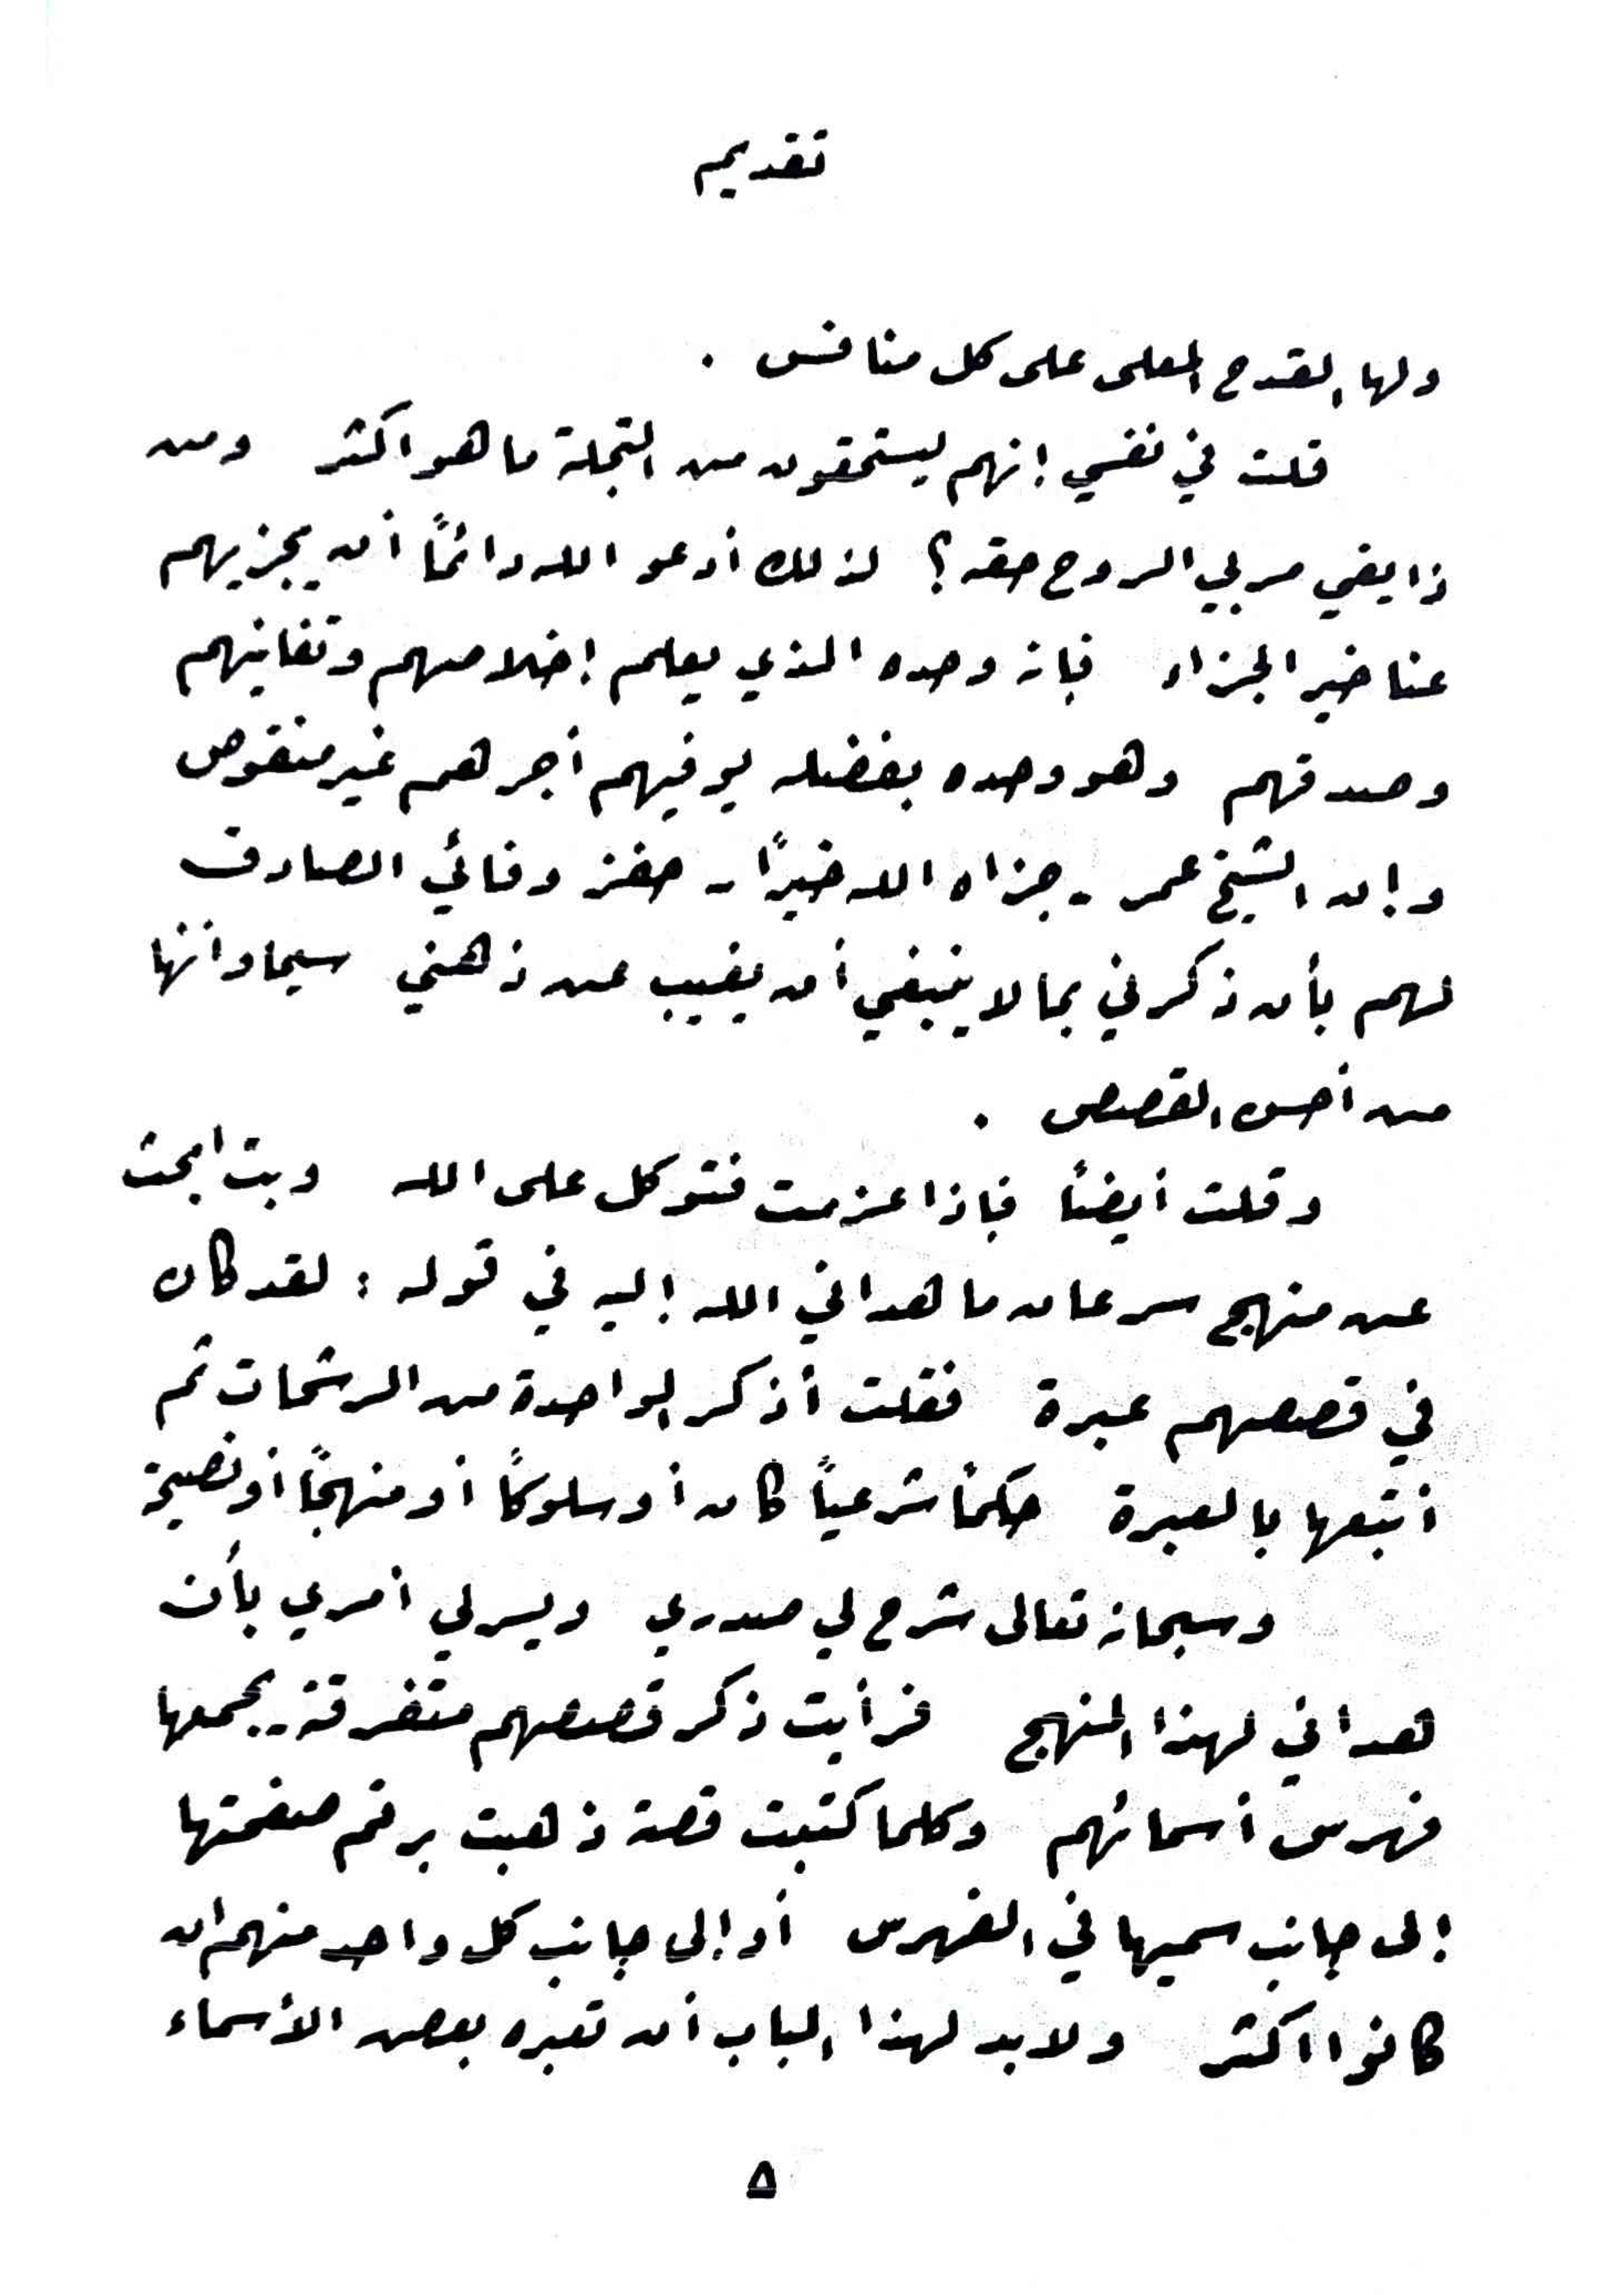 تقديم
ولها القدح المعلى على كل منافس .
قلت في نفسي إنهم ليستحقون من التجلة ما هو اكثر ومن
ذا يفي مربي الروح حقه ؟ لذلك أدعو الله دائماً أن يجزيهم
عنا خير الجزاء فإنه وحده الذي يعلم إخلاصهم وتفانيهم
وصدقهم وهو وحده بفضله يوفيهم أجرهم غير منقوص
وإن الشيخ عمر - جزاه الله خيرًا - حفز وفائي الصادق
لهم بأن ذكرني بما لا ينبغي أن يغيب عن ذهني سيما وأنها
من أحسن القصص .
وقلت أيضاً فإذا عزمت فتوكل على الله وبت ابحث
عن منهج سرعان ما هداني الله إليه في قوله : لقد كان
في قصصهم عبرة فقلت أذكر الواحدة من الرشحات ثم
أتبعها بالعبرة حكماً شرعياً كان أو سلوكاً أو منهجاً أو نصيحة
وسبحانه تعالى شرح لي صدري ويسر لي أمري بأن
هداني لهذا المنهج فرأيت ذكر قصصهم متفرقة - يجمعها
فهرس أسمائهم وكلما كتبت قصة ذهبت برقم صفحتها
إلى جانب سميها في الفهرس أو إلى جانب كل واحد منهم ان
كانوا اكثر ولا بد لهذا الباب أن تعبره بعض الأسماء
٥